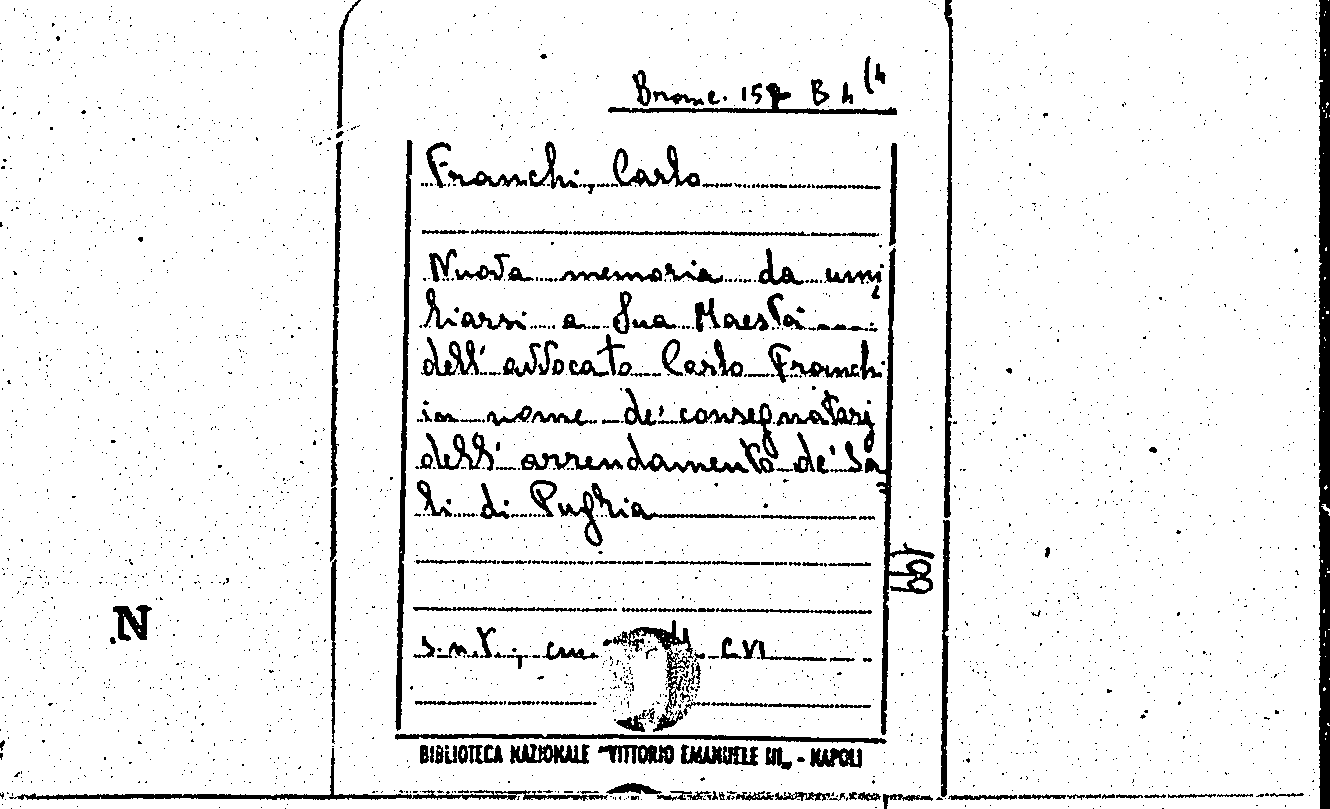 Branc. 158 B 4 (4
Franchi, Carlo
Nuova memoria da umi
liarsi a Sua Maestà ....
dell'avvocato Carlo Franchi
in nome de' consegnatarj
dell'arrendamento de' Sa
li di Puglia
s.n.t., cm. CVI
(99
.N
BIBLIOTECA NAZIONALE "VITTORIO EMANUELE III„ - NAPOLI